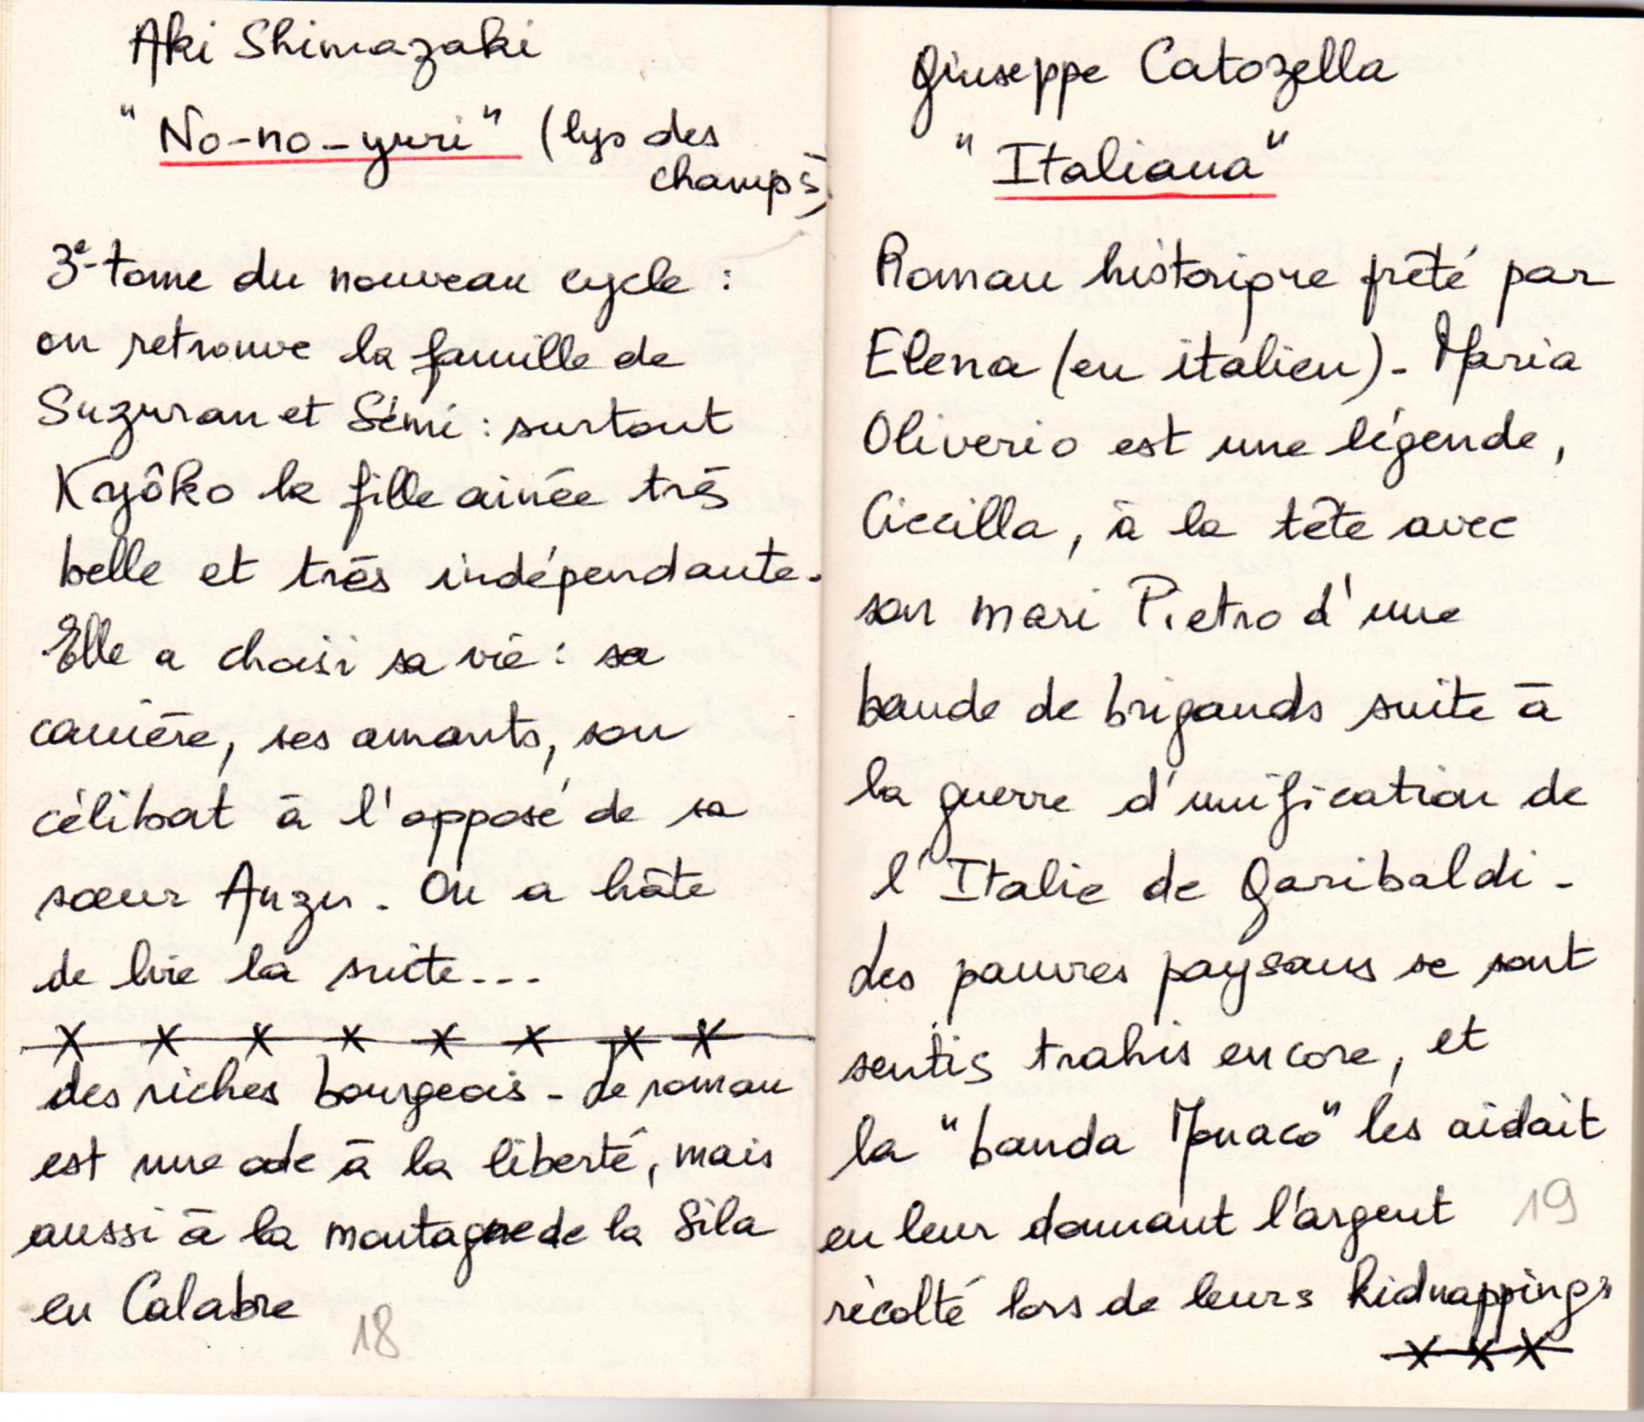 Aki Shimazaki
"No-no-yuri" (lys des
champs)
3e tome du nouveau cycle :
on retrouve la famille de
Suzuran et Sémi : surtout
Kyôko la fille ainée très
belle et très indépendante.
Elle a choisi sa vie : sa
carrière, ses amants, son
célibat à l'opposé de sa
sœur Anzu. On a hâte
de lire la suite...
x x x x x x x x
des riches bourgeois - Le roman
est une ode à la liberté, mais
aussi à la montagne de la Sila
en Calabre
18
Giuseppe Catozella
"Italiana"
Roman historique prêté par
Elena (en italien) - Maria
Oliverio est une légende,
Ciccilla, à la tête avec
son mari Pietro d'une
bande de brigands suite à
la guerre d'unification de
l'Italie de Garibaldi -
Les pauvres paysans se sont
sentis trahis encore, et
la "banda Monaco" les aidait
en leur donnant l'argent
19
récolté lors de leurs kidnappings
x x x